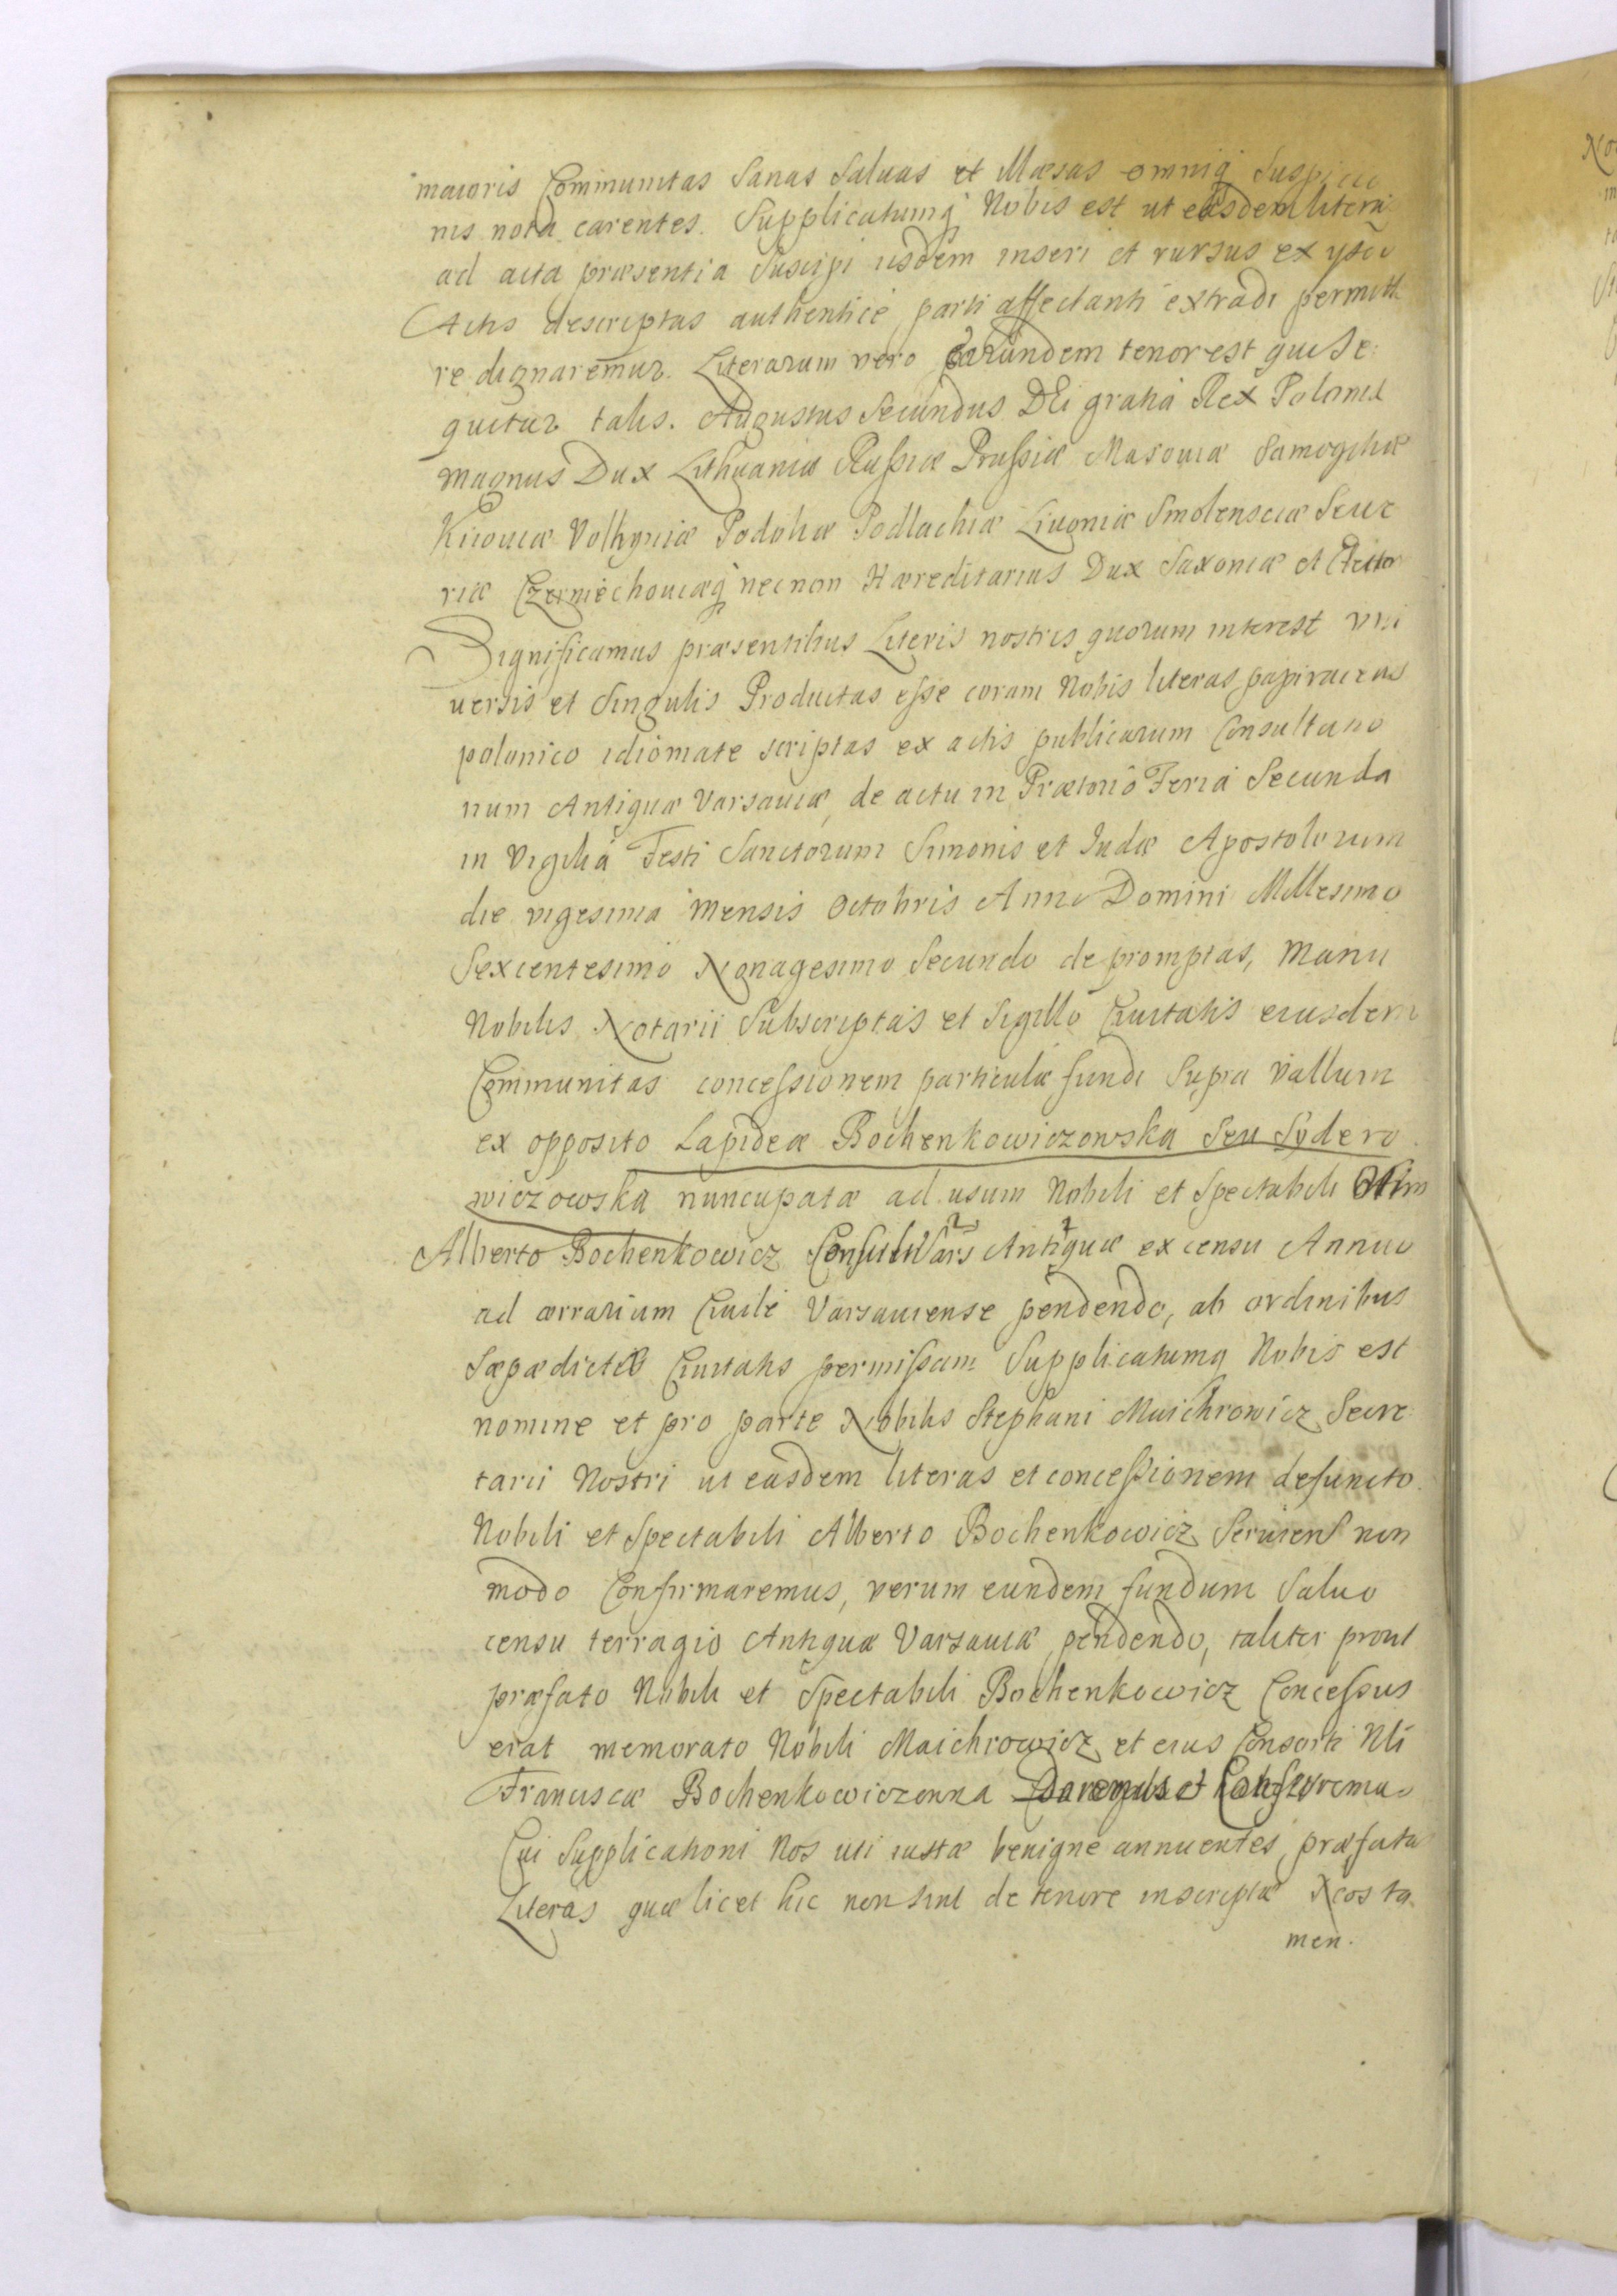 maioris Communitas Sanas Saluas et Illæsas omniq Suspicio
nis nota carentes. Supplicatumq Nobis est ut easdem litera
ad acta præsentia Suscipi iisdem inseri et rursus ex ysde
Actis descriptas authenticè parti affectanti extradi permitte
re dignaremur. Literarum vero earundem tenor est qui se:
quitur talis. Augustus Secundus DEi gratia Rex Poloniæ
Magnus Dux Lithuaniæ Russiæ Prussiæ Masoviæ Samogitiæ
Kiioviæ Volhyniæ Podoliæ Podlachiæ Livoniæ Smolensciæ Seve
riæ Czerniechoviæq necnon Hæreditarius Dux Saxoniæ et Elector
Significamus præsentibus Literis nostris quorum interest vni
uersis et Singulis Productas esse coram Nobis literas papiraceas
polonico idiomate scriptas ex actis publicarum Consultatio
num Antiquæ Varsaviæ, de actu in Prætorio Feria Secunda
in Vigilia Festi Sanctorum Simonis et Iudæ Apostolorum
die vigesima Mensis Octobris Anno Domini Millesimo
Sexcentesimo Nonagesimo Secundo depromptas, Manu
Nobilis Notarii Subscriptas et Sigillo Ciuitatis eiusdem
Communitas concessionem particulæ fundi Supra Vallum
ex opposito Lapideæ Bochenkowiczowska Seu Sydero
wiczowska nuncupatæ ad usum Nobili et Spectabili Olim
Alberto Bochenkowicz Consuli Vars Antiquæ ex censu Annuo
ad ærrarium Ciuile Varsauiense pendendo, ab ordinibus
Sæpædictæ Ciuitatis permissam Supplicatumq Nobis est
nomine et pro parte Nobilis Stephani Maichrowicz Secre
tarii Nostri ut easdem literas et concessionem defuncto
Nobili et Spectabili Alberto Bochenkowicz Seruiens non
modo Confirmaremus, verum eundem fundum Saluo
censu terragio Antiquæ Varsauiæ pendendo, taliter prout
præfato Nobili et Spectabili Bochenkowicz Concessus
erat memorato Nobili Maichrowicz et eius Consorti Nli
Francisca Bochenkowiczonna Daremus et Conferremus
Cui Supplicationi Nos uti iustæ benignè annuentes, præfatas
Literas quæ licet hic non sint de tenore inscriptæ eos ta
men.